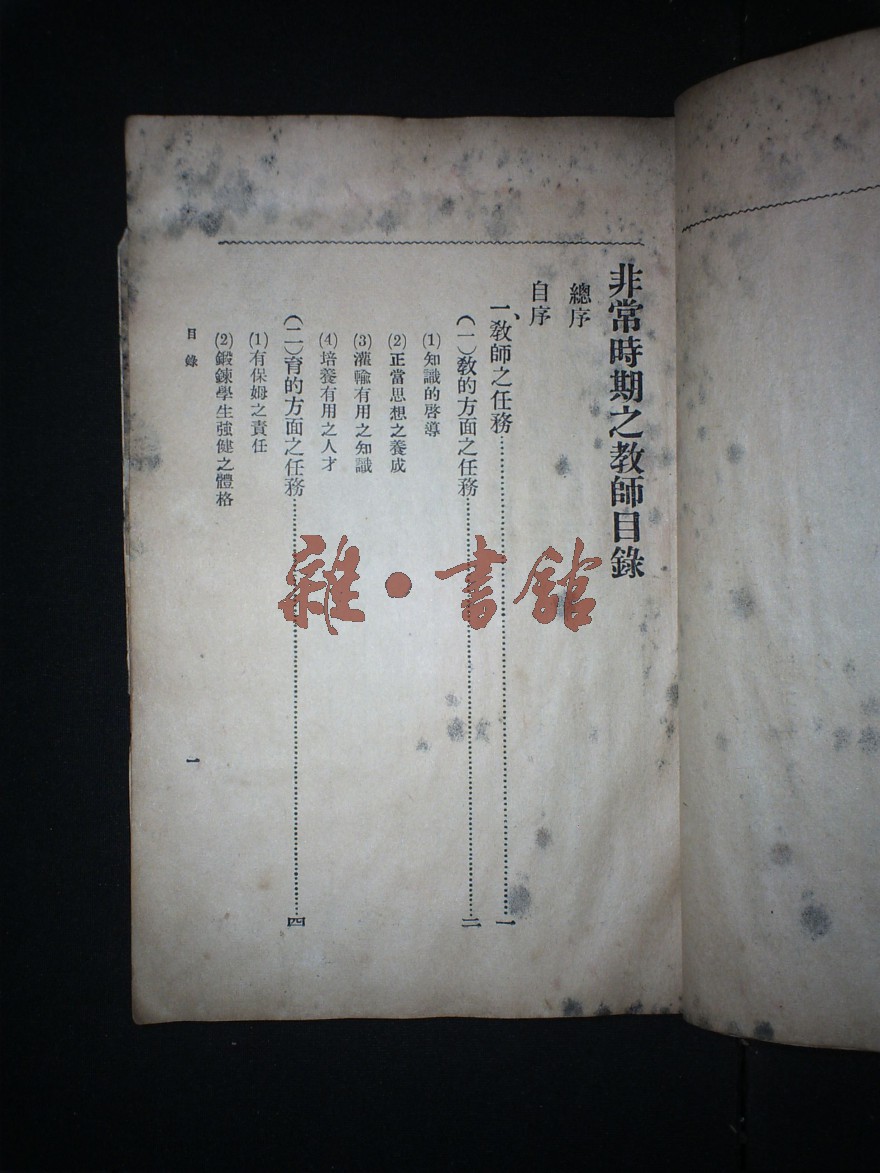 非常時期之教師目錄
總序
自序
一、教師之任務……一
（一）教的方面之任務……二
(1)知識的啓導
(2)正當思想之養成
(3)灌輸有用之知識
(4)培養有用之人才
（二）育的方面之任務……四
(1)有保姆之責任
(2)鍛鍊學生強健之體格
目錄
一
雜·書館